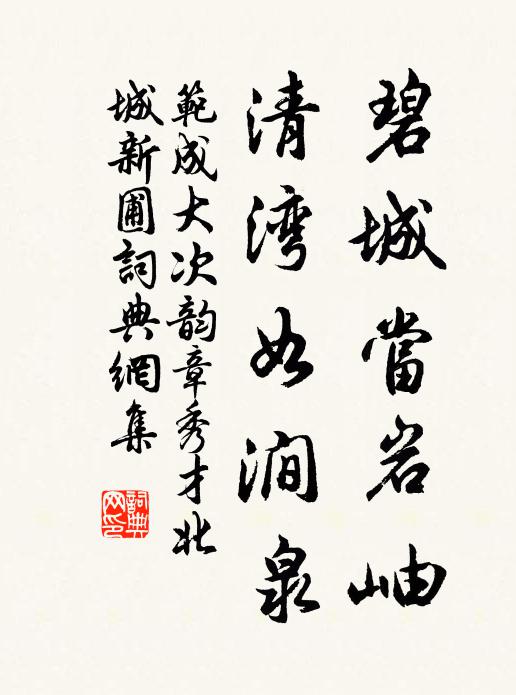 碧城當岩岫
清湾如涧泉
範成大次韵章秀才北
城新圃詞典網集
詞典网印